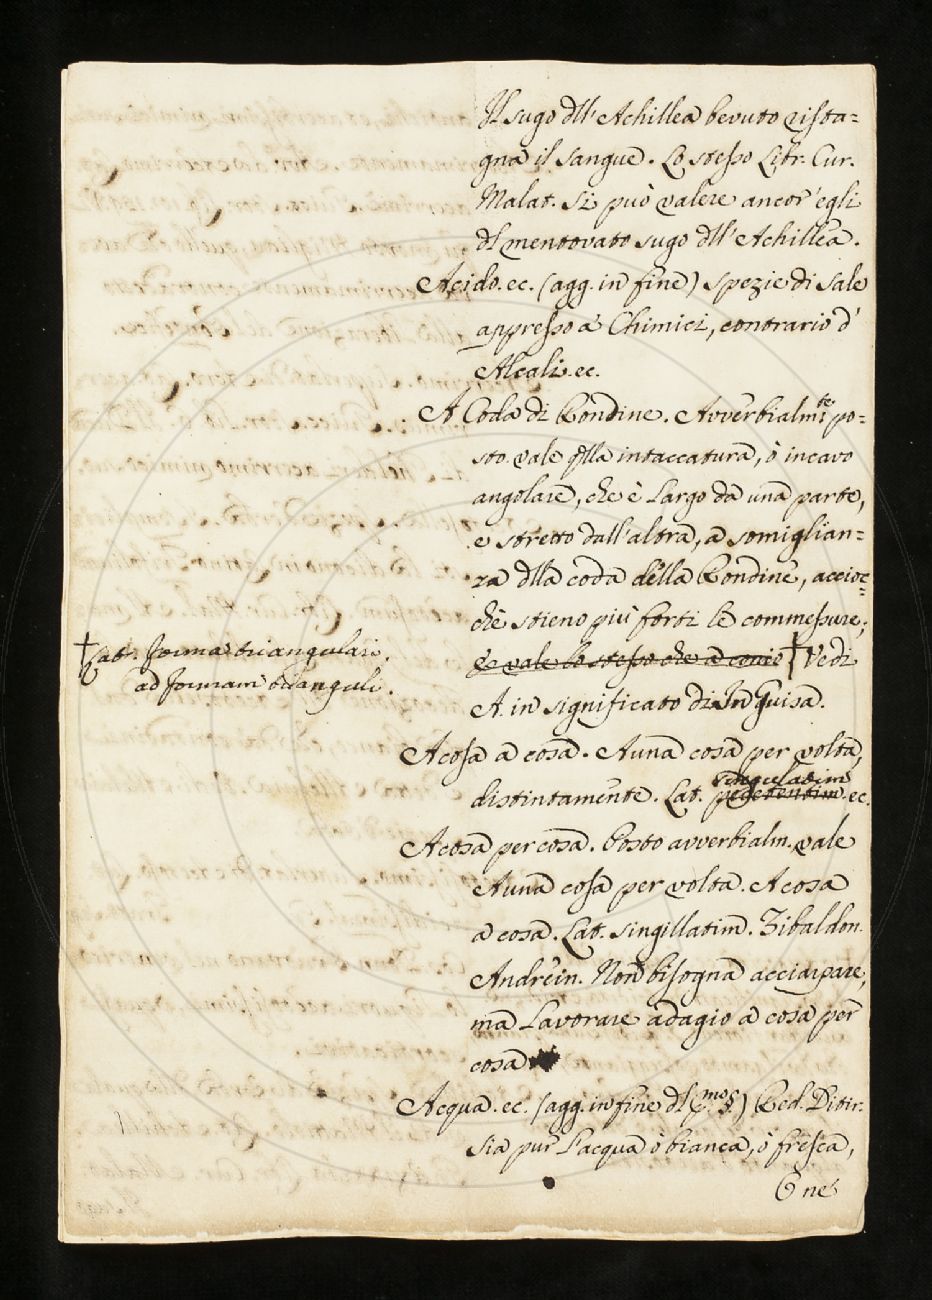 Il sugo dll' Achillea bevuto rista=
gna il sangue. Lo stesso Libr. Cur.
Malat. Si può valere ancor' egli
dl mentovato sugo dll' Achillea.
Acido. ec. (agg. in fine) spezie di sale
appresso a' Chimici, contrario d'
Alcali. ec.
A Coda di Rondine. Avverbialmte po=
sto vale qlla intaccatura, ò incavo
angolare, che è largo da una parte,
e stretto dall'altra, a somiglian=
za dlla coda della Rondine, accioc=
chè stieno più forti le commessure;
e vale lo stesso che a conio † Vedi
† Lat. forma triangulari,
ad formam trianguli.
A. in significato di In Guisa.
A cosa a cosa. A una cosa per volta,
distintamente. Lat. pedetentim singulatim ec.
A cosa per cosa. Posto avverbialm. vale
A una cosa per volta. A cosa
a cosa. Lat. singillatim. Zibaldon.
Andrein. Non bisogna acciarpare,
ma lavorare adagio a cosa per
cosa
Acqua. ec. (agg. in fine dl pmo §) Red. Ditir.
Sia pur l'acqua ò bianca, ò fresca,
O ne'